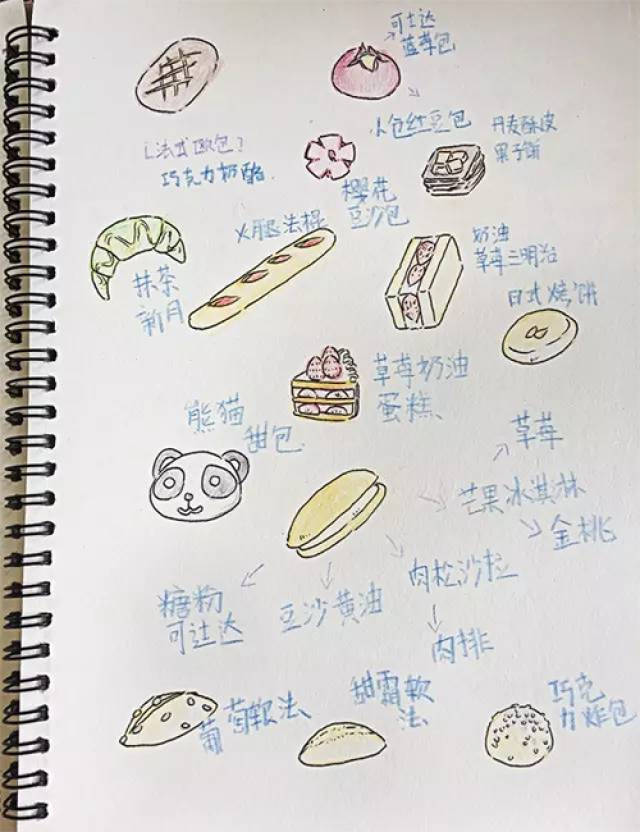 可士达
蓝莓包
小包红豆包
丹麦酥皮
果子饼
L法式欧包?
巧克力奶酪
樱花
豆沙包
火腿法棍
奶油
草莓三明治
抹茶
新月
日式烧饼
草莓奶油
蛋糕
熊猫
甜包
草莓
芒果冰淇淋
金桃
肉松沙拉
糖粉
可士达
豆沙黄油
肉排
葡萄软法
甜霜软
法
巧克
力炸包